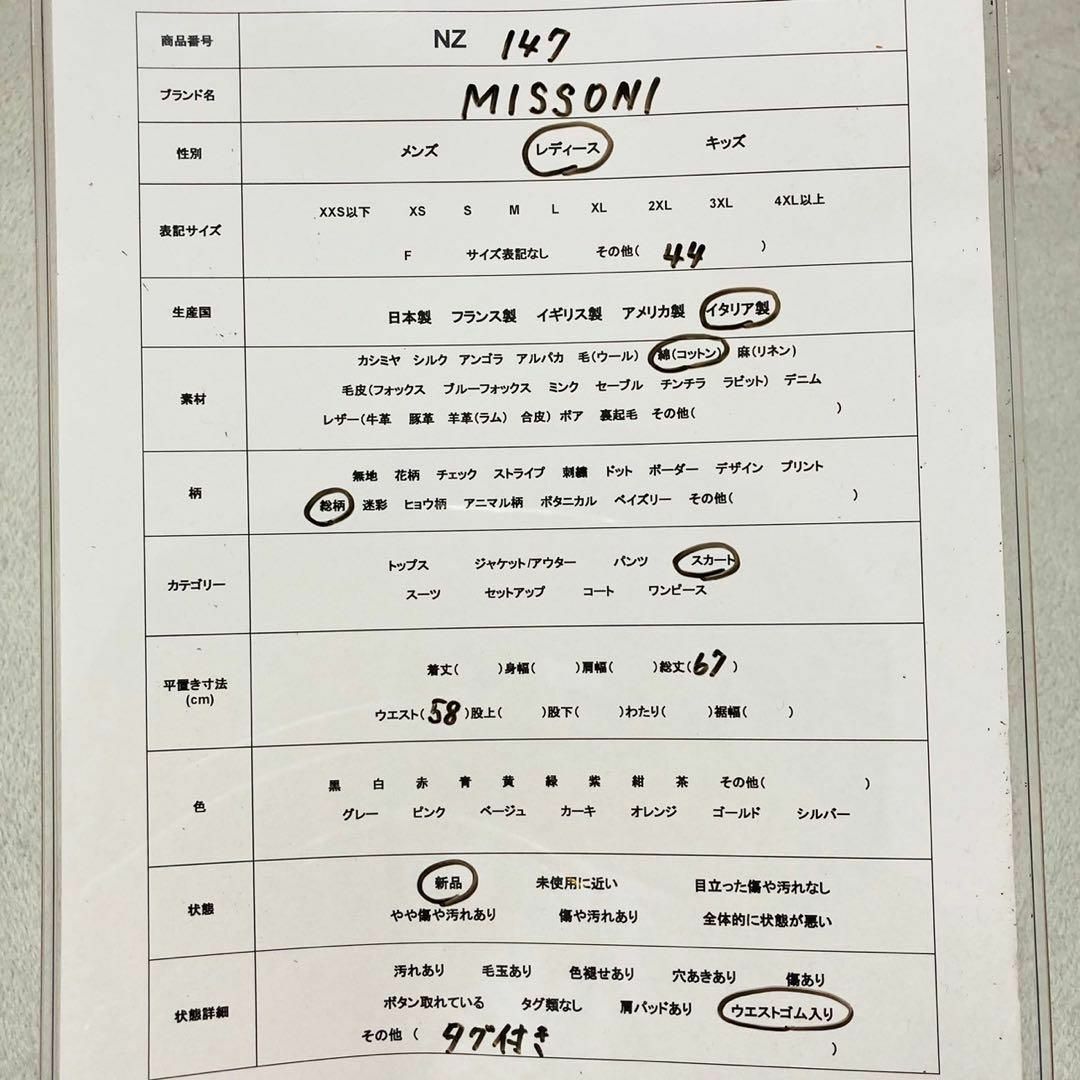 商品番号 NZ 147
ブランド名 MISSONI
性別 メンズ レディース キッズ
表記サイズ
XXS以下 XS S M L XL 2XL 3XL 4XL以上
F サイズ表記なし その他( 44 )
生産国 日本製 フランス製 イギリス製 アメリカ製 イタリア製
素材
カシミヤ シルク アンゴラ アルパカ 毛(ウール) 綿(コットン) 麻(リネン)
毛皮(フォックス ブルーフォックス ミンク セーブル チンチラ ラビット) デニム
レザー(牛革 豚革 羊革(ラム) 合皮) ボア 裏起毛 その他( )
柄
無地 花柄 チェック ストライプ 刺繍 ドット ボーダー デザイン プリント
総柄 迷彩 ヒョウ柄 アニマル柄 ボタニカル ペイズリー その他( )
カテゴリー
トップス ジャケット/アウター パンツ スカート
スーツ セットアップ コート ワンピース
平置き寸法
(cm)
着丈( )身幅( )肩幅( )総丈(67)
ウエスト(58)股上( )股下( )わたり( )裾幅( )
色
黒 白 赤 青 黄 緑 紫 紺 茶 その他( )
グレー ピンク ベージュ カーキ オレンジ ゴールド シルバー
状態
新品 未使用に近い 目立った傷や汚れなし
やや傷や汚れあり 傷や汚れあり 全体的に状態が悪い
状態詳細
汚れあり 毛玉あり 色褪せあり 穴あきあり 傷あり
ボタン取れている タグ類なし 肩パッドあり ウエストゴム入り
その他 ( タグ付き )